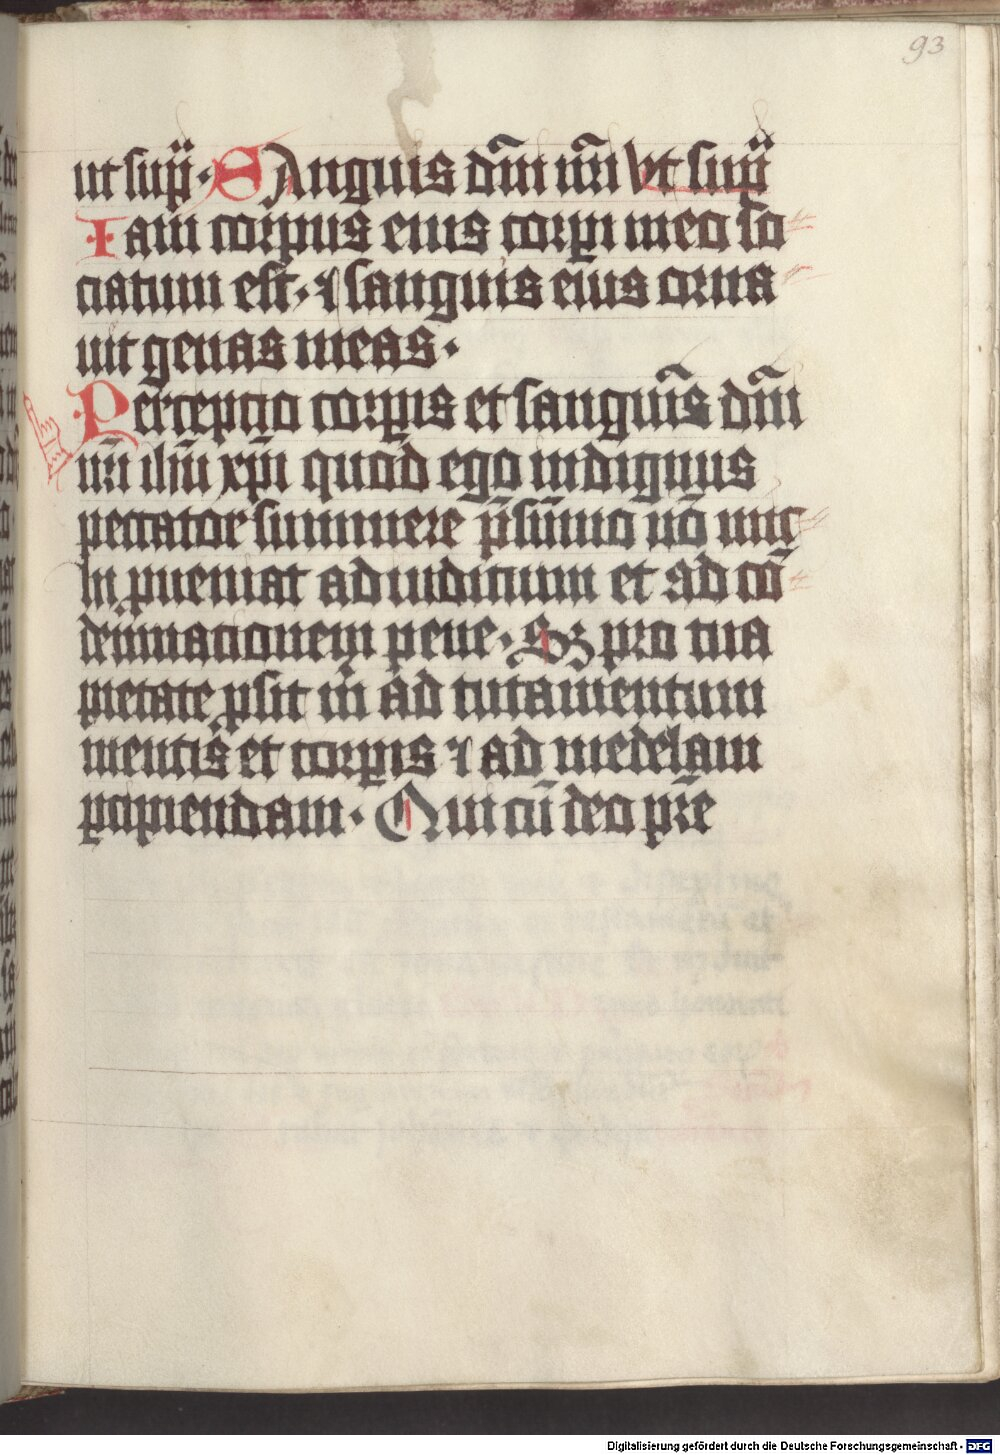 93
ut sup̄. SAnguis dn̄i nr̄i Vt sup̄
Iam corpus eius corp̱i meo so
ciatum est. ⁊ sanguis eius orna
uit genas meas.
Perceptio corp̱is et sanguīs dn̄i
nr̄i ih̄u xp̄i quod ego indignus
peccator summere p̄sūmo nō mic
hi ꝓueniat ad iudicium et ad cō
demnacionem pene. Sꝫ pro tua
pietate ꝓsit m̄ ad tutamentum
mentis et corp̱is ⁊ ad medelam
ꝑcipiendam. Qui cū deo pr̄e
Digitalisierung gefördert durch die Deutsche Forschungsgemeinschaft - DFG